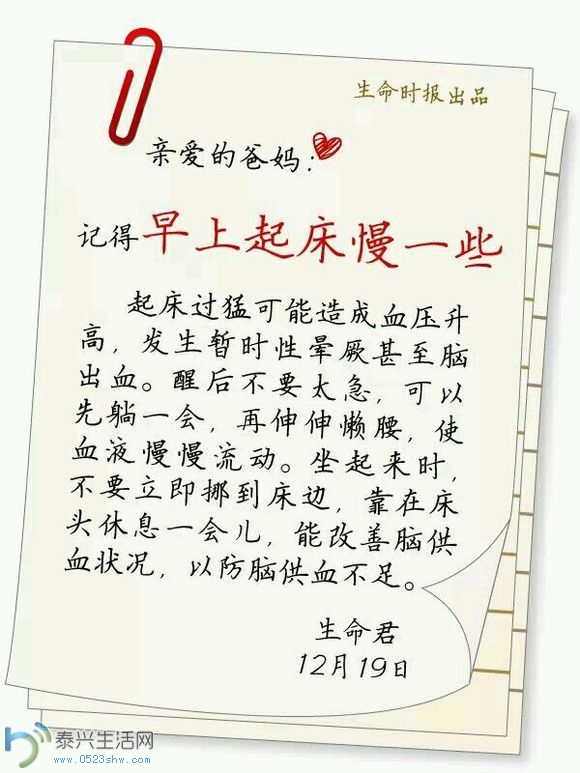 生命时报出品
亲爱的爸妈：
记得早上起床慢一些
起床过猛可能造成血压升
高，发生暂时性晕厥甚至脑
出血。醒后不要太急，可以
先躺一会，再伸伸懒腰，使
血液慢慢流动。坐起来时，
不要立即挪到床边，靠在床
头休息一会儿，能改善脑供
血状况，以防脑供血不足。
生命君
12月19日
泰兴生活网
www.0523shw.com